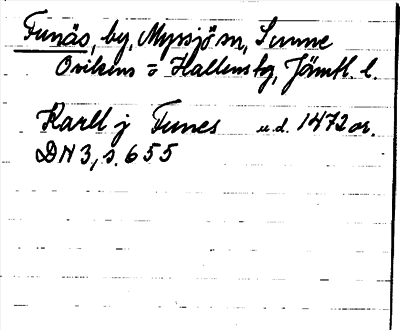 Funäs, by, Myssjö sn, Sunne
Ovikens o Hallens tg, Jämtl. l.
Karll j Funes u.d. 1472 or.
DN 3, s. 655